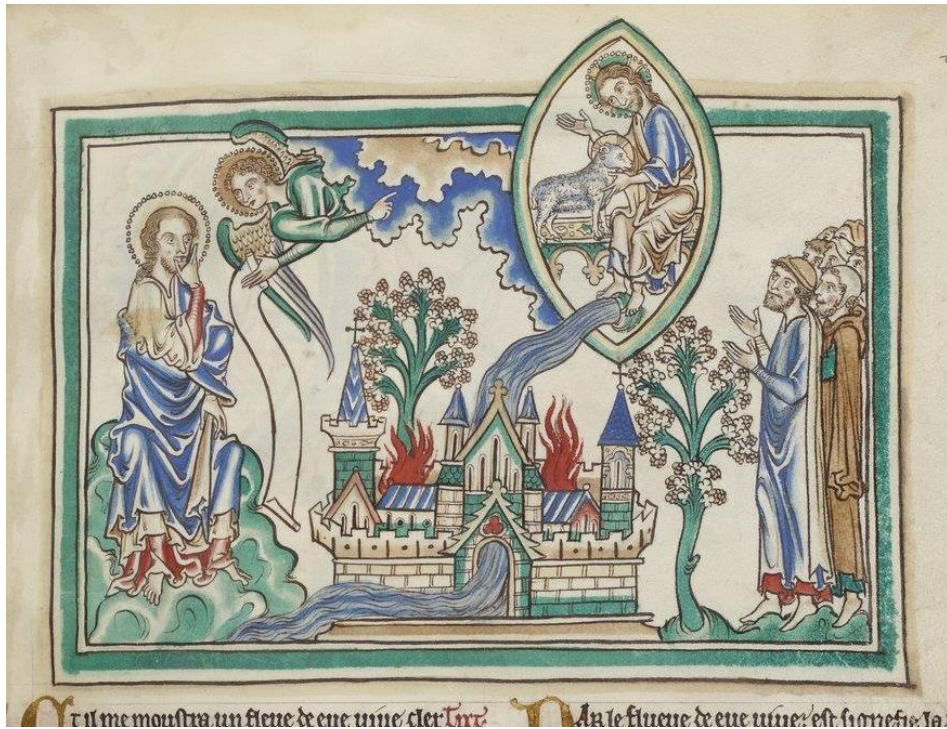 Et il me moustra un fleue de eue uiue cler
PAR le flueue de eue uiue: est signefie la